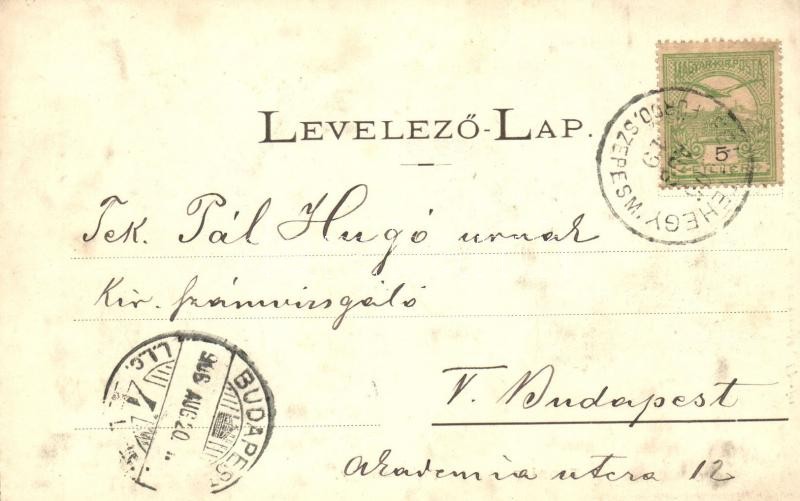 MAGYAR·KIR·POSTA
5
LEVELEZŐ-LAP.
FÜRDŐ, SZEPES W.
Tek. Pál Hugó urnak
Kir. számvizsgáló
V. Budapest
Akademia utcza 12
BUDAPEST
906 AUG 20.